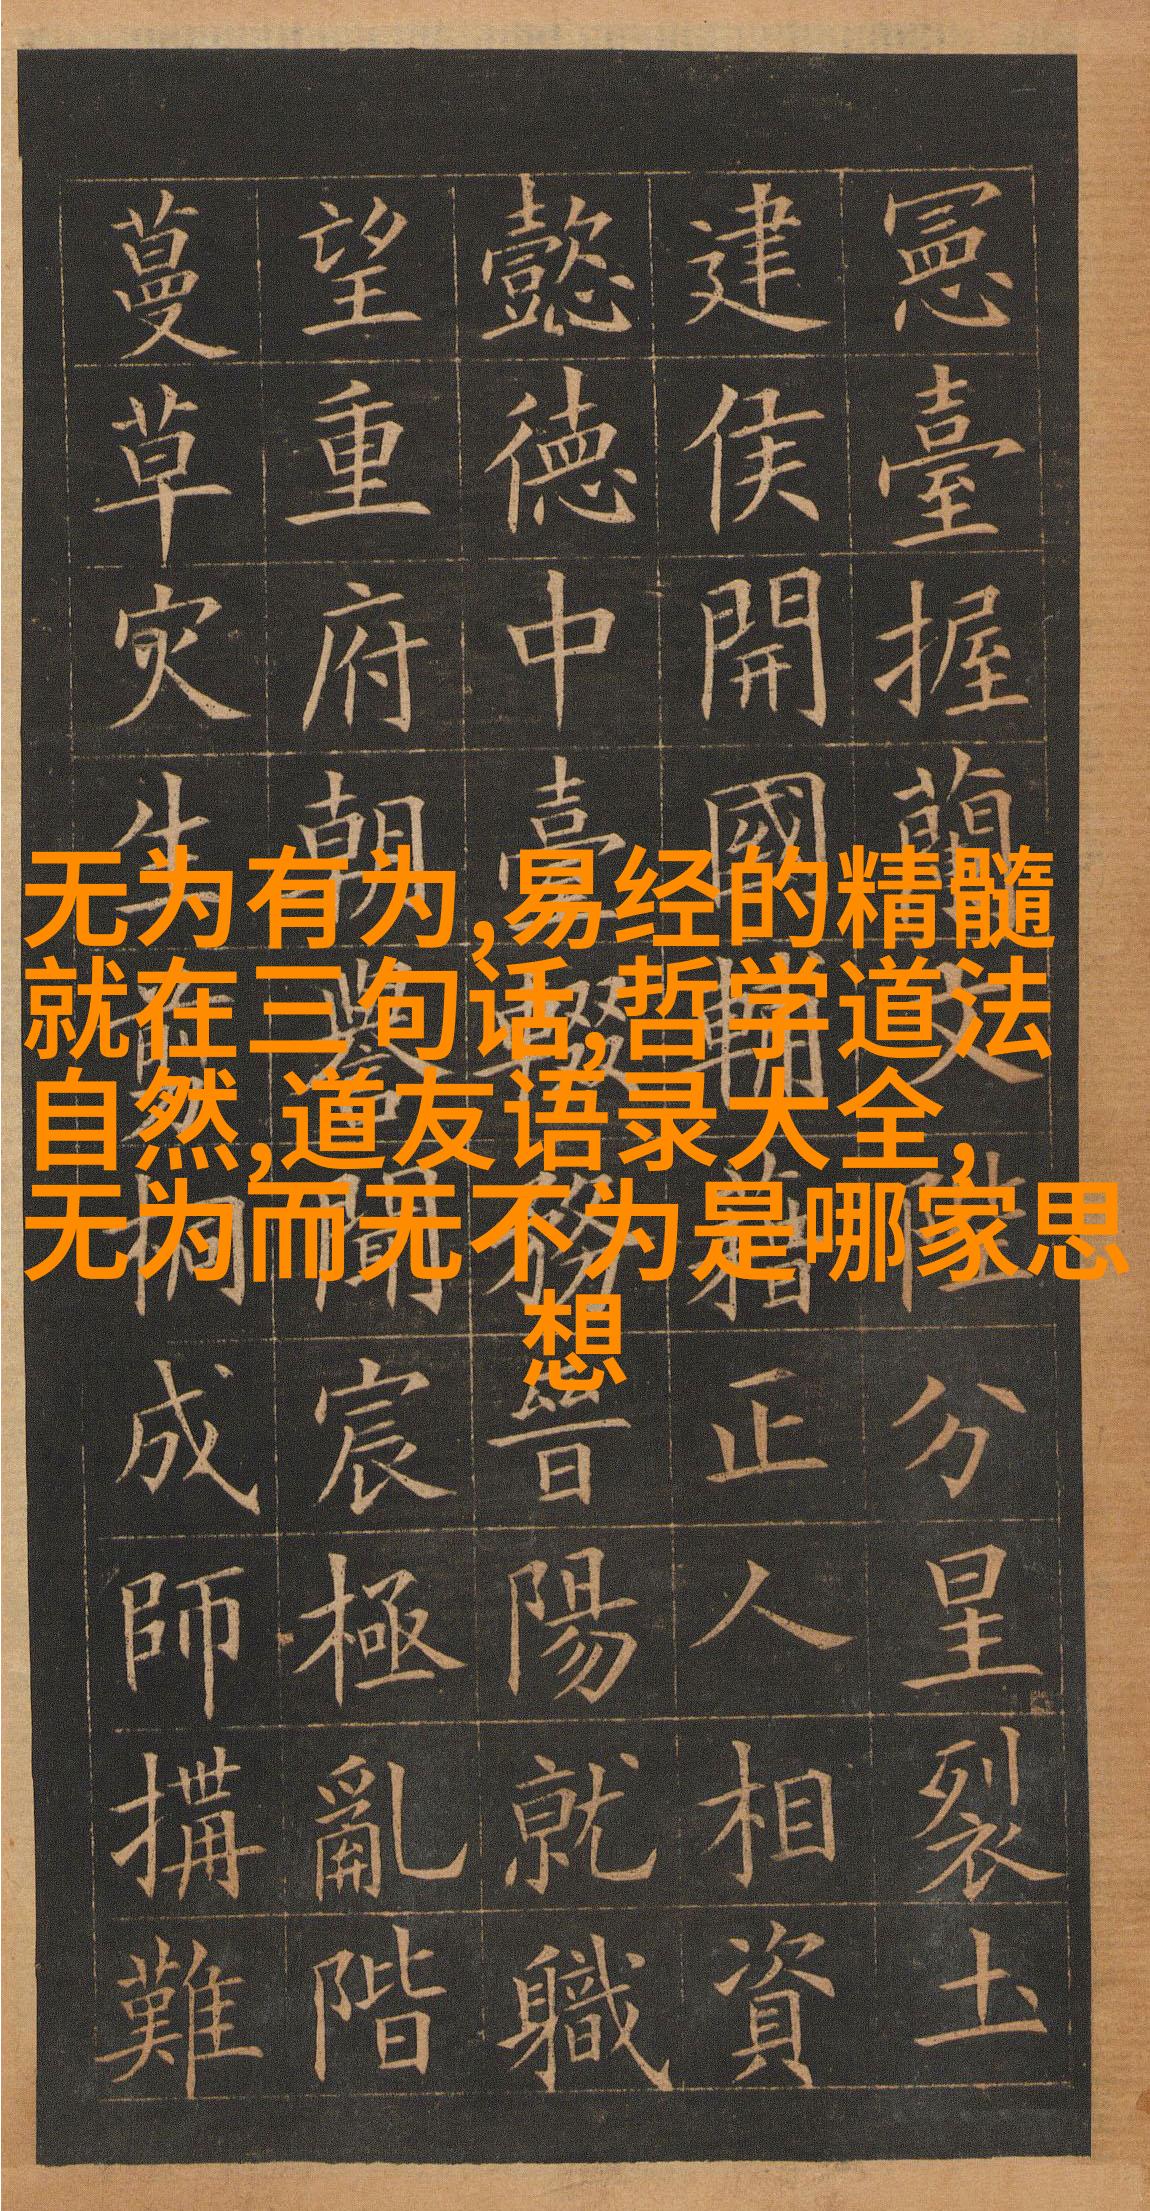 憲臺握蘭文陛分星裂土
建侯開國輔藉正人相資
懿德中臺輟務晉陽就職
望重府朝譽聞宸極亂階
蔓草灾生剪桐成師搆難
无为有为,易经的精髓
就在三句话,哲学道法
自然,道友语录大全,
无为而无不为是哪家思
想